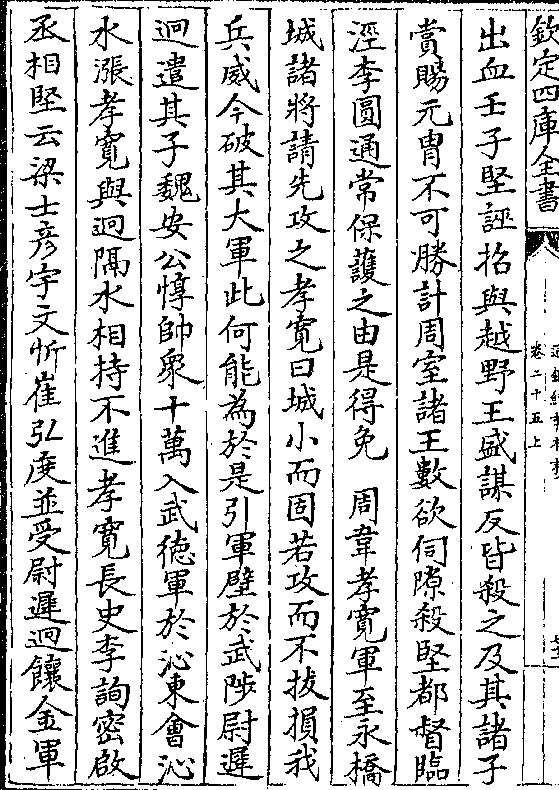 欽定四庫全書
卷二十五上
出血壬子堅誣招與越野王盛謀反皆殺之及其諸子
賞賜元胄不可勝計周室諸王數欲伺隙殺堅都督臨
涇李圓通常保護之由是得免　周韋孝寬軍至永橋
城諸將請先攻之孝寬曰城小而固若攻而不拔損我
兵威今破其大軍此何能為於是引軍壁於武陟尉遲
迥遣其子魏安公惇帥衆十萬入武德軍於沁東會沁
水漲孝寬與迥隔水相持不進孝寬長史李詢密啟
丞相堅云梁士彥宇文忻崔弘度並受尉遲迥饟金軍